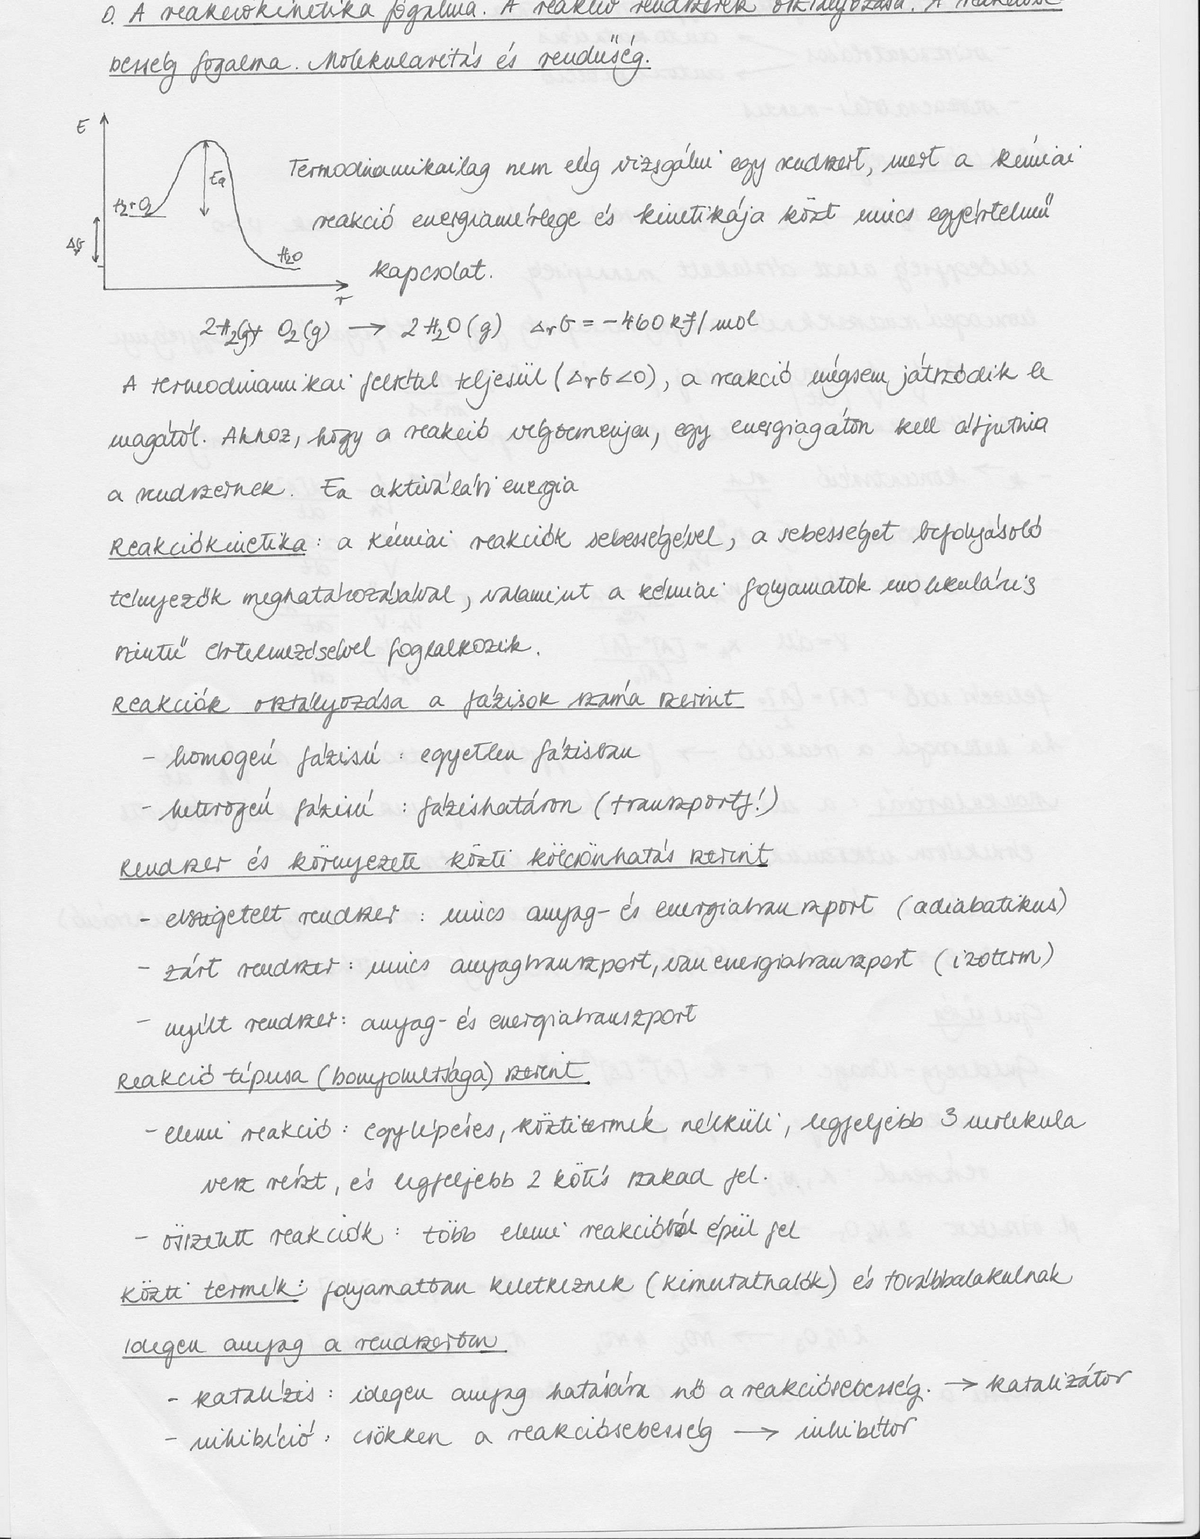 0. A reakciókinetika fogalma. A reakció rendszerek osztályozása. A reakcióse-
besség fogalma. Molekularitás és rendűség.
E
Termodinamikailag nem elég vizsgálni egy rendszert, mert a kémiai
Ea
H2+O2
reakció energiamérlege és kinetikája közt nincs egyértelmű
ΔG
H2O
kapcsolat.
r
2H2(g)+ O2(g) → 2H2O(g) ΔrG = -460 kJ/mol
A termodinamikai feltétel teljesül (ΔrG<0), a reakció mégsem játszódik le
magától. Ahhoz, hogy a reakció végbemenjen, egy energiagáton kell átjutnia
a rendszernek. Ea aktiválási energia
Reakciókinetika: a kémiai reakciók sebességével, a sebességet befolyásoló
tényezők meghatározásával, valamint a kémiai folyamatok molekuláris
szintű értelmezésével foglalkozik.
Reakciók osztályozása a fázisok száma szerint
- homogén fázisú: egyetlen fázisban
- heterogén fázisú: fázishatáron (transzportf!)
Rendszer és környezete közti kölcsönhatás szerint
- elszigetelt rendszer: nincs anyag- és energiatranszport (adiabatikus)
- zárt rendszer: nincs anyagtranszport, van energiatranszport (izoterm)
- nyílt rendszer: anyag- és energiatranszport
Reakció típusa (bonyolultsága) szerint
- elemi reakció: egylépéses, köztitermék nélküli, legfeljebb 3 molekula
vesz részt, és legfeljebb 2 kötés szakad fel.
- összetett reakciók: több elemi reakcióból épül fel
Közti termék: folyamatban keletkeznek (kimutathatók) és továbbalakulnak
Idegen anyag a rendszerben
- katalízis: idegen anyag hatására nő a reakciósebesség. → katalizátor
- inhibíció: csökken a reakciósebesség → inhibitor